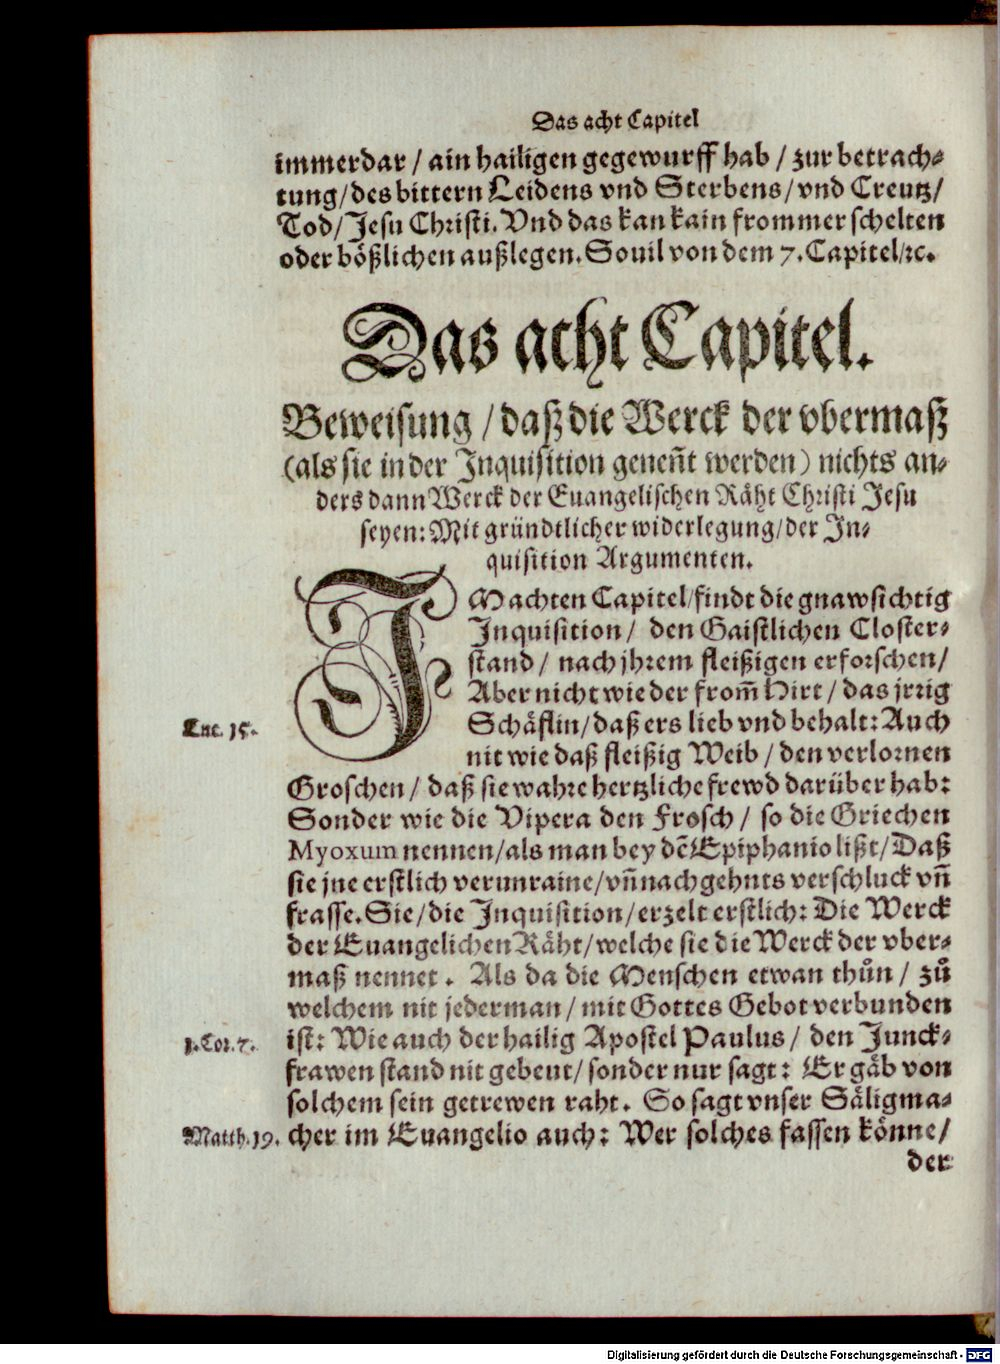 Das acht Capitel
immerdar / ain hailigen gegewurff hab / zur betrach-
tung/des bittern Leidens vnd Sterbens/vnd Creutz/
Tod/Jesu Christi. Vnd das kan kain frommer schelten
oder bößlichen außlegen. Souil von dem 7. Capitel/ꝛc.
Das acht Capitel.
Beweisung / daß die Werck der vbermaß
(als sie in der Inquisition geneñt werden) nichts an-
ders dann Werck der Euangelischen Räht Christi Jesu
seyen: Mit gründtlicher widerlegung/der In-
quisition Argumenten.
IM achten Capitel/findt die gnawsichtig
Inquisition / den Gaistlichen Closter-
stand / nach jhrem fleißigen erforschen/
Aber nicht wie der from̃ Hirt / das jrrig
Luc. 15. Schäflin/daß ers lieb vnd behalt: Auch
nit wie daß fleißig Weib / den verlornen
Groschen / daß sie wahre hertzliche frewd darüber hab:
Sonder wie die Vipera den Frosch / so die Griechen
Myoxum nennen/als man bey dẽ Epiphanio lißt/Daß
sie jne erstlich verunraine/vñ nachgehnts verschluck vñ
frasse. Sie/die Inquisition/erzelt erstlich: Die Werck
der Euangelichen Räht/welche sie die Werck der vber-
maß nennet. Als da die Menschen etwan thůn / zů
welchem nit jederman / mit Gottes Gebot verbunden
1. Cor. 7. ist: Wie auch der hailig Apostel Paulus / den Junck-
frawen stand nit gebeut/sonder nur sagt: Er gäb von
solchem sein getrewen raht. So sagt vnser Säligma-
Matth. 19. cher im Euangelio auch: Wer solches fassen könne/
der
Digitalisierung gefördert durch die Deutsche Forschungsgemeinschaft - DFG